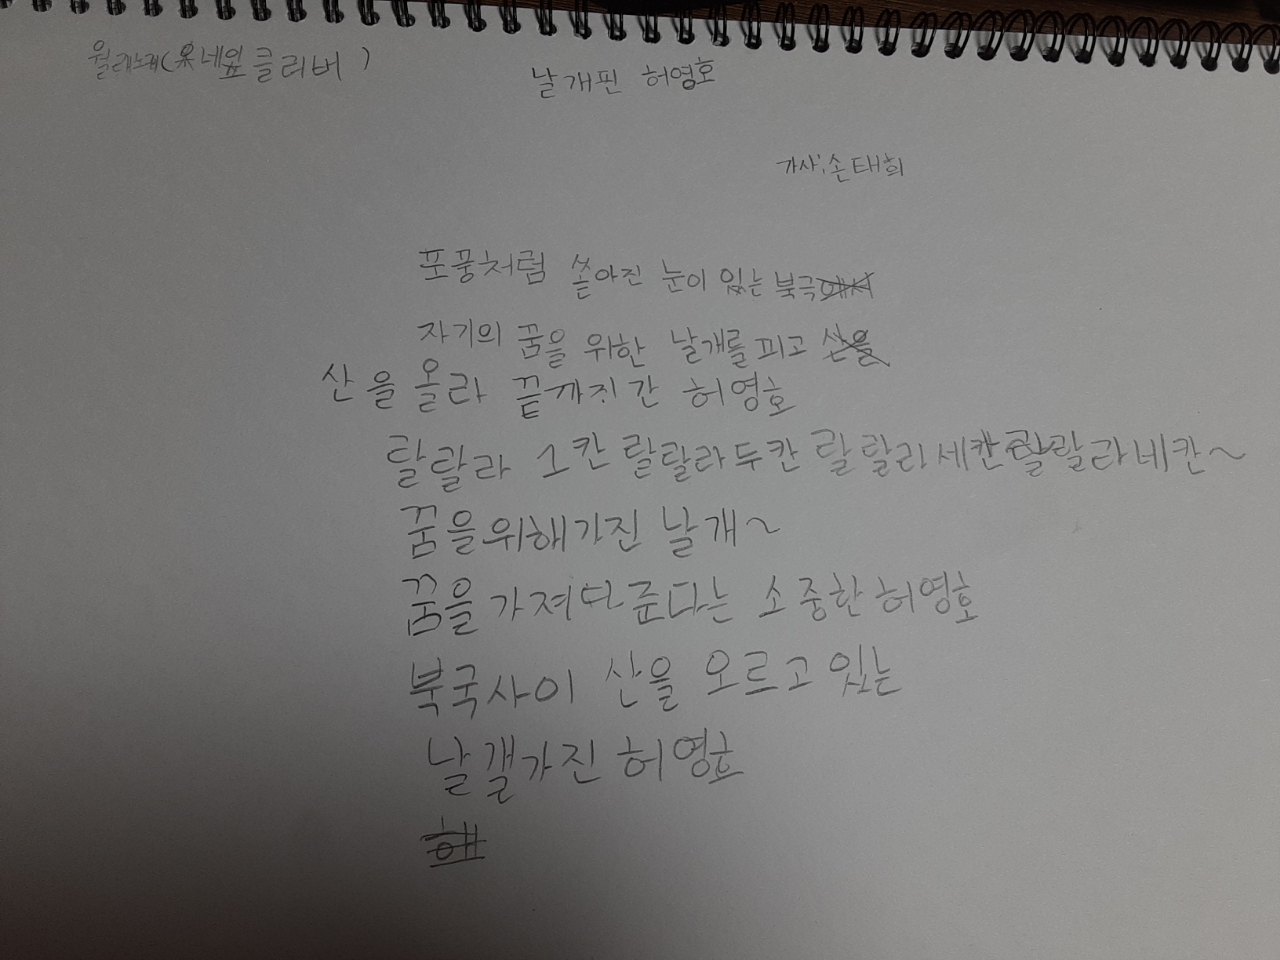 원래노래(네잎클리버)
날개핀 허영호
가사:손태희
포풍처럼 쏟아진 눈이 있는 북극
자기의 꿈을 위한 날개를 피고
산을 올라 끝까지간 허영호
랄랄라 1칸 랄랄라두칸 랄랄라세칸랄랄라네칸~
꿈을위해가진 날개~
꿈을 가져다준다는 소중한 허영호
북국사이 산을 오르고있는
날갤가진 허영호